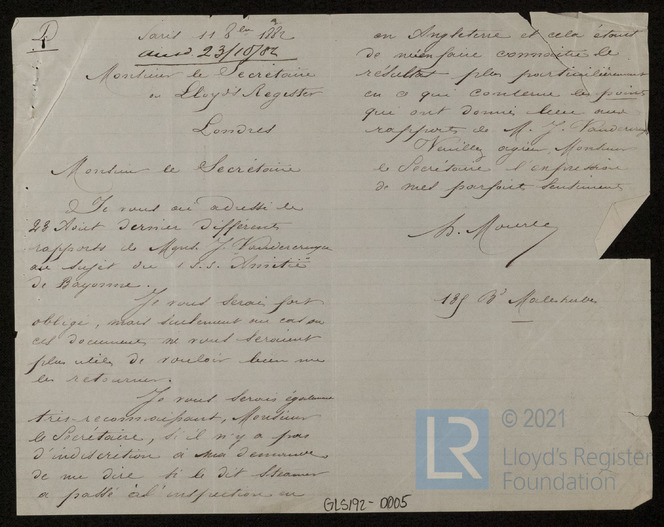 Paris 11 8bre 1882
ansd 23/10/82
Monsieur le Secrétaire
du Lloyd's Register
Londres
Monsieur le Secrétaire
Je vous ai adressé le
28 Août dernier différents
rapports de Monsr J. Vandercruyce
au sujet du s.s. Amitié
de Bayonne.
Je vous serai fort
obligé, mais seulement au cas où
ces documents ne vous seraient
plus utiles de vouloir bien me
les retourner.
Je vous serais également
très-reconnaissant, Monsieur
le Secrétaire, si il n'y a pas
d'indiscrétion à ma demande
de me dire si le dit Steamer
a passé à l'inspection en
en Angleterre et cela étant
de m'en faire connaître le
résultat plus particulièrement
en ce qui concerne les points
que ont donné lieu aux
rapports de M. J.
Veuillez agréer Monsieur
le Secrétaire l'expression
de mes parfaits sentiments
185 Bd Malesherbes
GLS192-0005
LR
© 2021
Lloyd's Register
Foundation